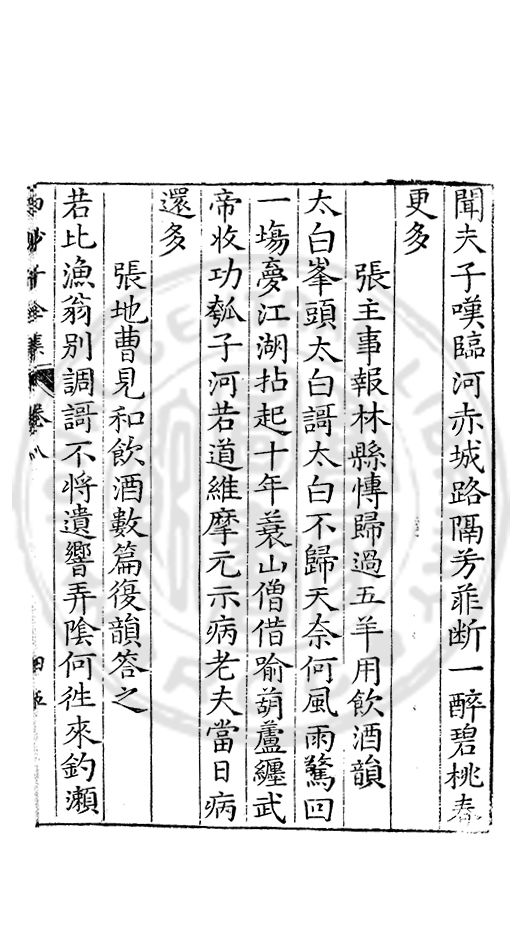 聞夫子嘆臨河赤城路隔芳菲断一醉碧桃春
更多
張主事報林縣慱歸過五羊用飲酒韻
太白峯頭太白謌太白不歸天奈何風雨驚回
一塲夣江湖拈起十年蓑山僧借喻葫蘆纒武
帝收功瓠子河若道維摩元示病老夫當日病
還多
張地曹見和飲酒數篇復韻答之
若比漁翁别調謌不将遺響弄陰何徃來釣瀬
卷八